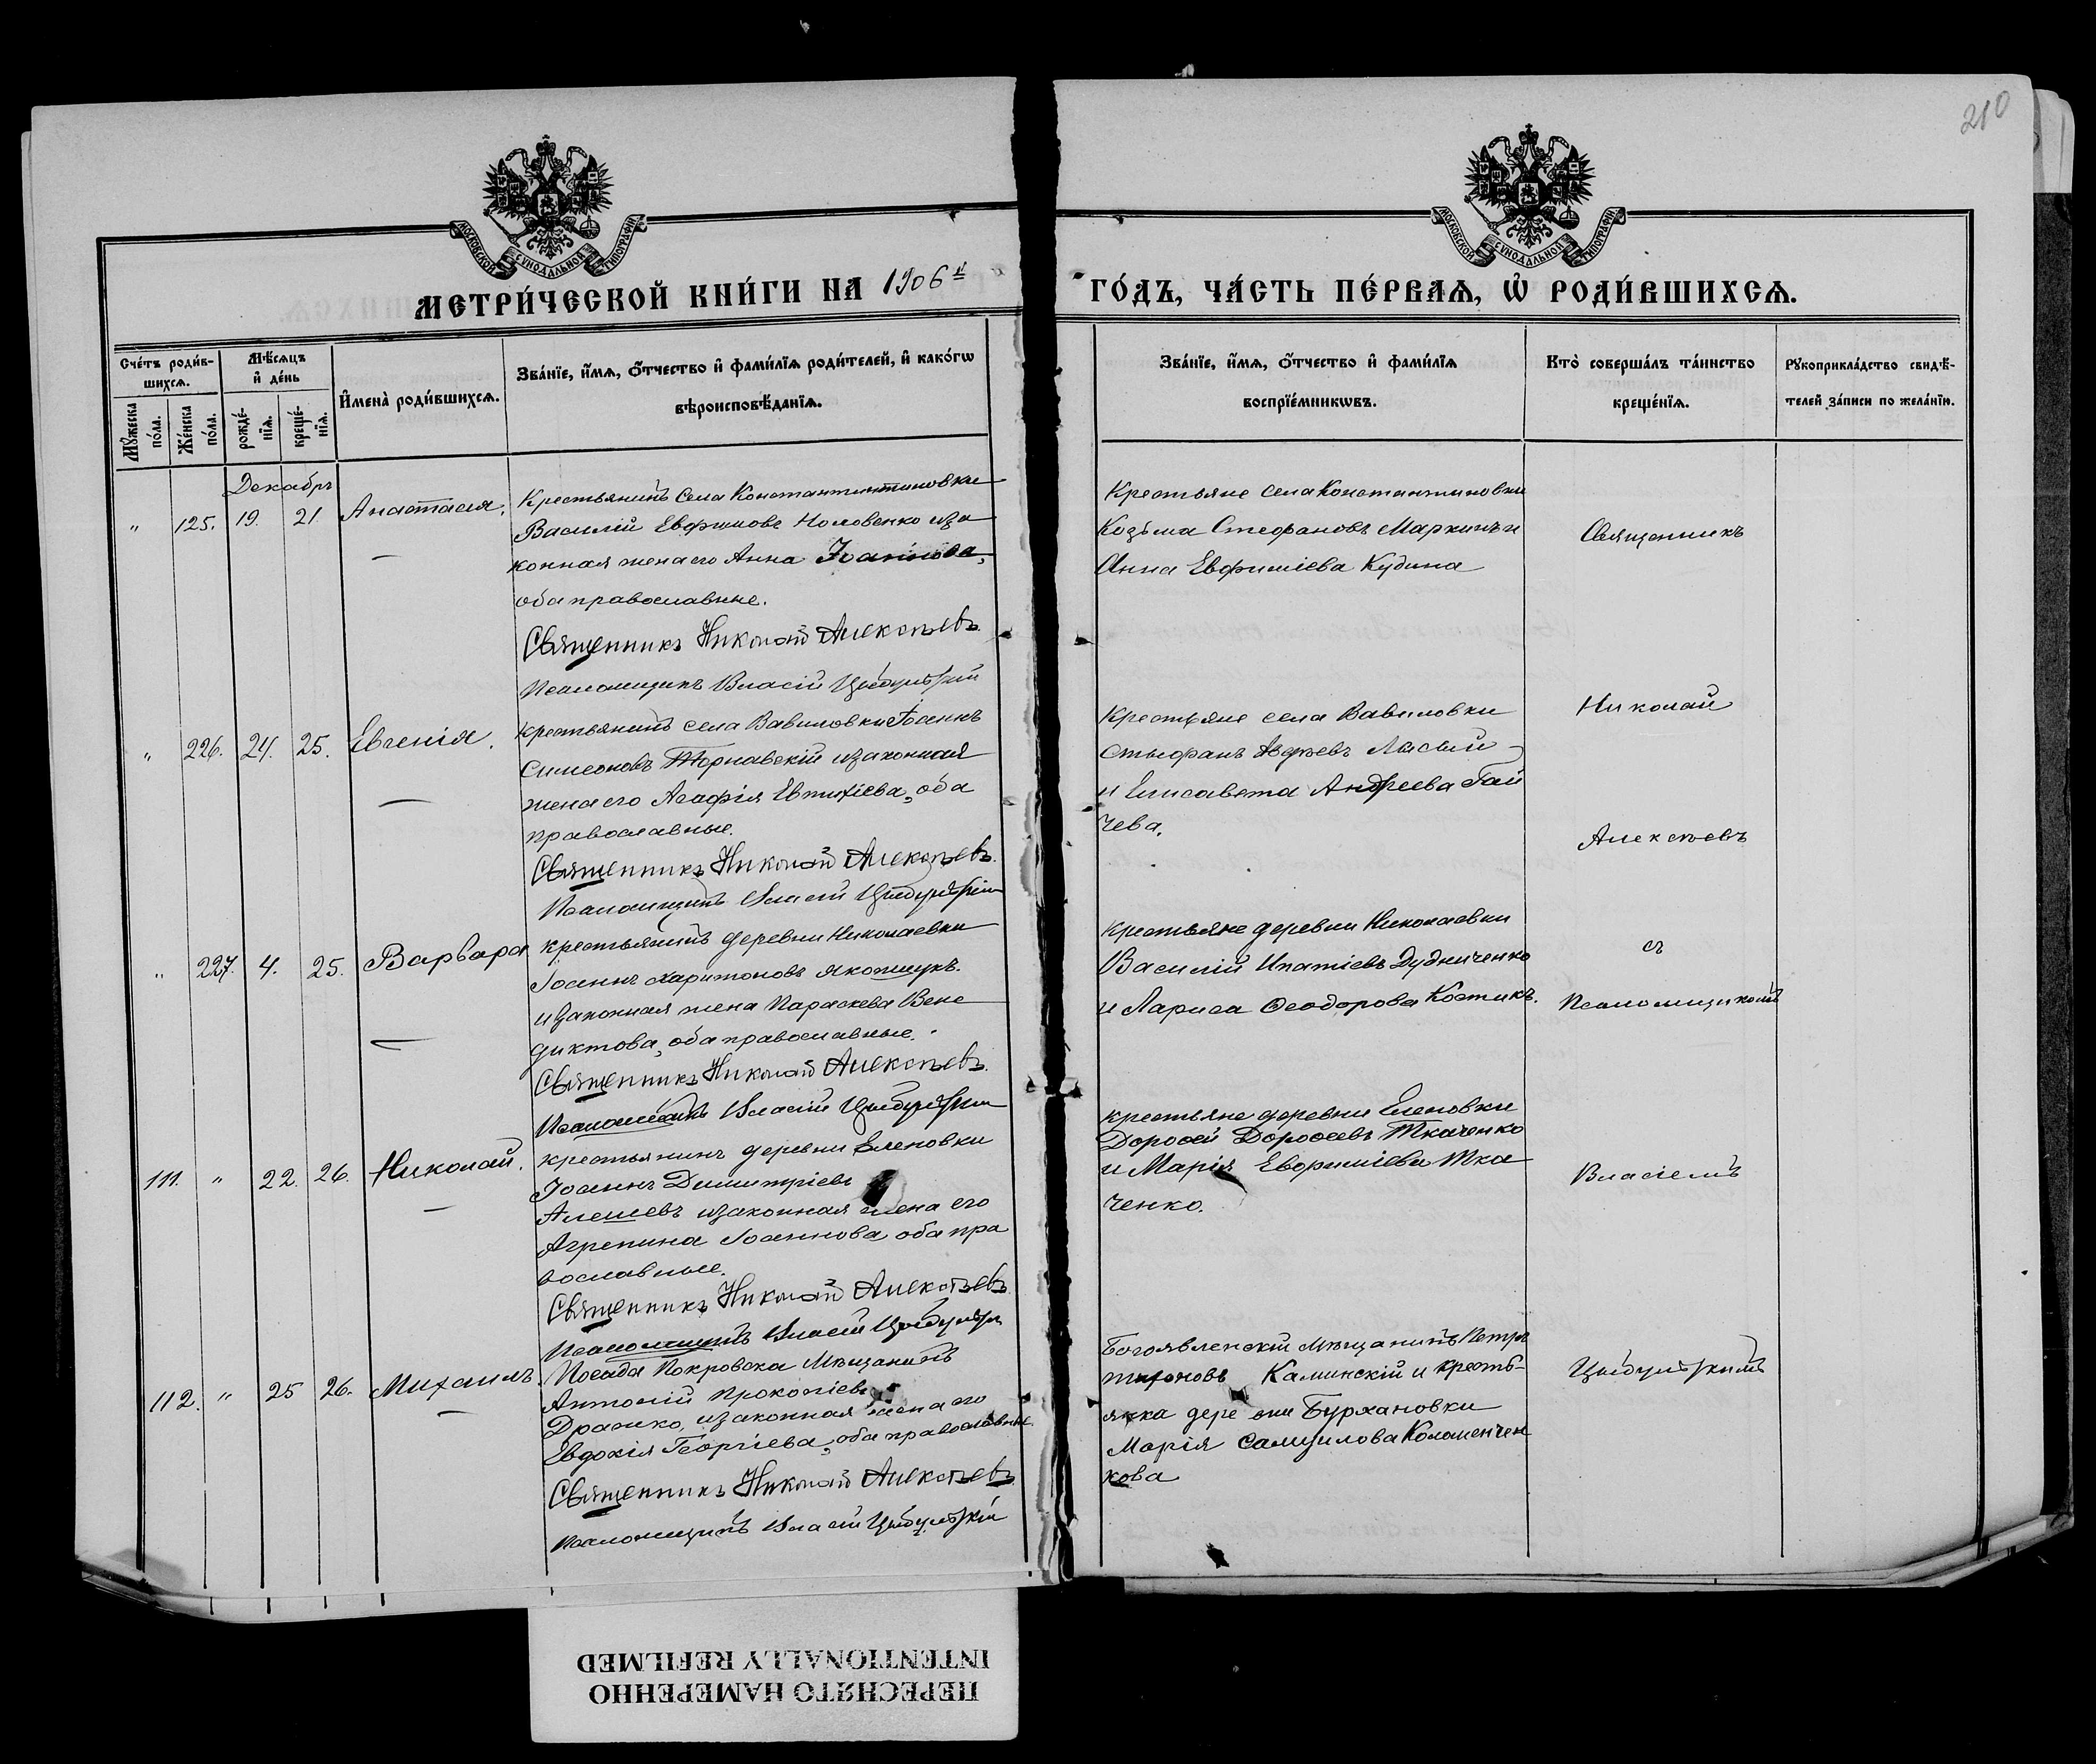 210
МОСКОВСКОЙ СѴНОДАЛЬНОЙ ТИПОГРАФІИ
МОСКОВСКОЙ СѴНОДАЛЬНОЙ ТИПОГРАФІИ
МЕТРИ́ЧЕСКОЙ КНИ́ГИ НА 1906й ГО́ДЪ, ЧА́СТЬ ПЕ́РВАѦ, Ѡ҆ РОДИ́ВШИХСѦ.
Сче́тъ роди́в-
шихсѧ.
Мѹ́жеска по́ла.
Же́нска по́ла.
Мѣ́сѧцъ и҆ де́нь
рожде́-
нїѧ.
креще́-
нїѧ.
И҆мена̀ роди́вшихсѧ.
Зва́нїе, и҆́мѧ, ѻ҆́тчество и҆ фами́лїѧ роди́телей, и҆ како́гѡ
вѣроисповѣ́данїѧ.
Зва́нїе, и҆́мѧ, ѻ҆́тчество и҆ фами́лїѧ
воспрїе́мникѡвъ.
Кто̀ соверша́лъ та́инство
креще́нїѧ.
Рꙋкоприкла́дство свидѣ́-
телей за́писи по жела́нїю.
Декабрь
" 125. 19. 21 Анастасія.
Крестьянинъ села Константиновки
Василій Евфимовъ Головенко и за
конная жена его Анна Іоаннова,
оба православные.
Священникъ Николай Алексѣевъ.
Псаломщикъ Власій Цыбульскій
Крестьяне села Константиновки
Козьма Стефановъ Маркинъ и
Анна Евфиміева Кудина
Священникъ
" 226. 24. 25. Евгенія.
крестьянинъ села Вавиловки Іоаннъ
Симеоновъ Тернавскій и законная
жена его Агафія Евтихіева, оба
православные.
Священникъ Николай Алексѣевъ.
Псаломщикъ Власій Цыбульскій
Крестьяне села Вавиловки
Стефанъ Авдѣевъ Лысый
и Елисавета Андреева Гай
чева.
Николай
Алексѣевъ
" 227. 4. 25. Варвара
крестьянинъ деревни Николаевки
Іоаннъ Харитоновъ
и законная жена Параскева Вене
диктова, оба православные.
Священникъ Николай Алексѣевъ.
Псаломщикъ Власій Цыбульскій
крестьяне деревни Николаевки
Василій Ипатіевъ Дудниченко
и Лариса Ѳеодорова Костикъ.
съ
Псаломщикомъ
111. " 22. 26. Николай.
крестьянинъ деревни Еленовки
Іоаннъ Димитріевъ
Алешевъ и законная жена его
Агрепина Іоаннова, оба пра
вославные.
Священникъ Николай Алексѣевъ
Псаломщикъ Власій Цыбульскій
крестьяне деревни Еленовки
Дорофей Дорофеевъ Ткаченко
и Марія Евфиміева Тка
ченко.
Власіемъ
112. " 25 26. Михаилъ.
Посада Покровска Мѣщанинъ
Антоній Прокопіевъ
Драчко, и законная жена его
Евдокія Георгіева, оба православные.
Священникъ Николай Алексѣевъ
Псаломщикъ Власій Цыбульскій
Богоявленскій мѣщанинъ Петръ
Каминскій и кресть-
янка деревни Бурхановки
Марія Самуилова Коломенчен
кова
Цыбульскимъ
ПЕРЕСНЯТО НАМЕРЕННО
INTENTIONALLY REFILMED